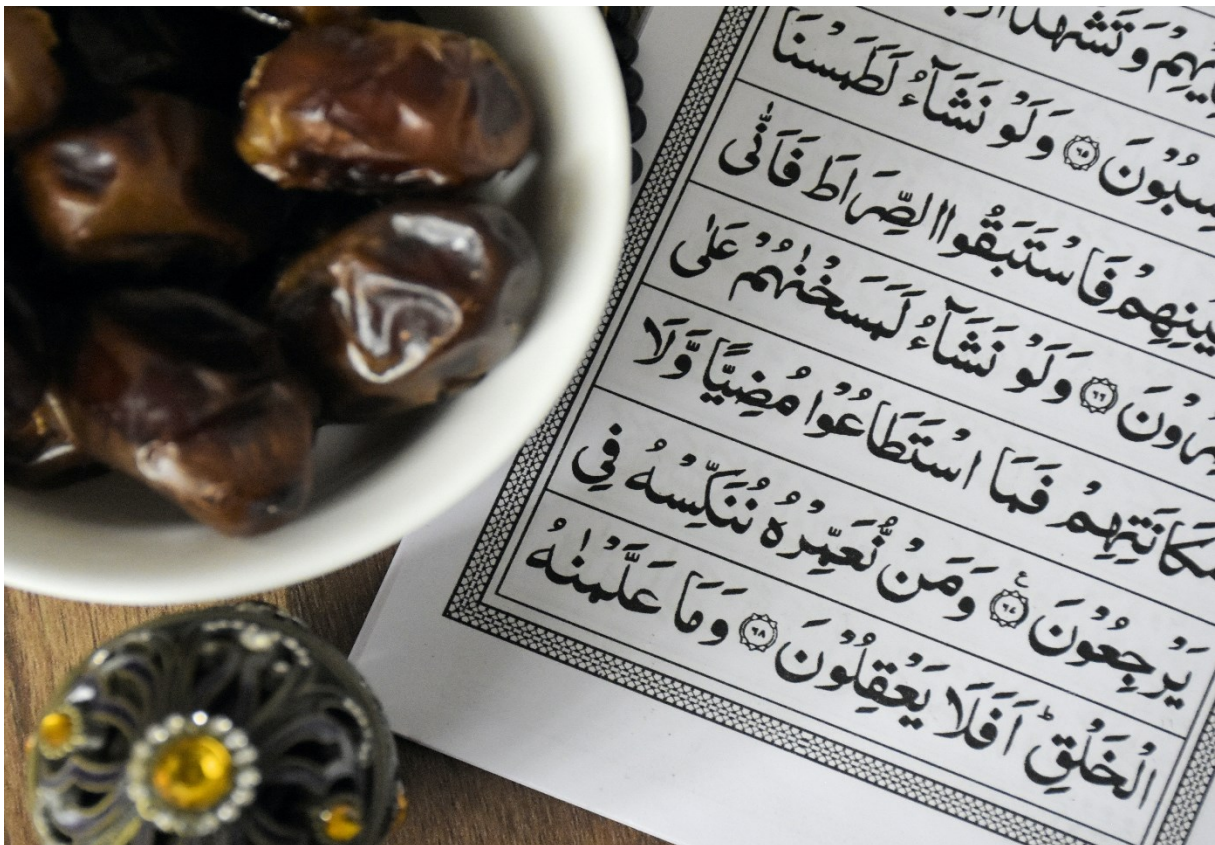 وَتَشْهَدُ
وَلَوْ نَشَآءُ لَطَمَسْنَا ٦٥
فَاسْتَبَقُوا الصِّرَاطَ فَاَنّٰى
وَلَوْ نَشَآءُ لَمَسَخْنٰهُمْ عَلٰى ٦٦
مَكَانَتِهِمْ فَمَا اسْتَطَاعُوْا مُضِيًّا وَّلَا
يَرْجِعُوْنَ ٦٧ وَمَنْ نُّعَمِّرْهُ نُنَكِّسْهُ فِى
الْخَلْقِؕ اَفَلَا يَعْقِلُوْنَ ٦٨ وَمَا عَلَّمْنٰهُ